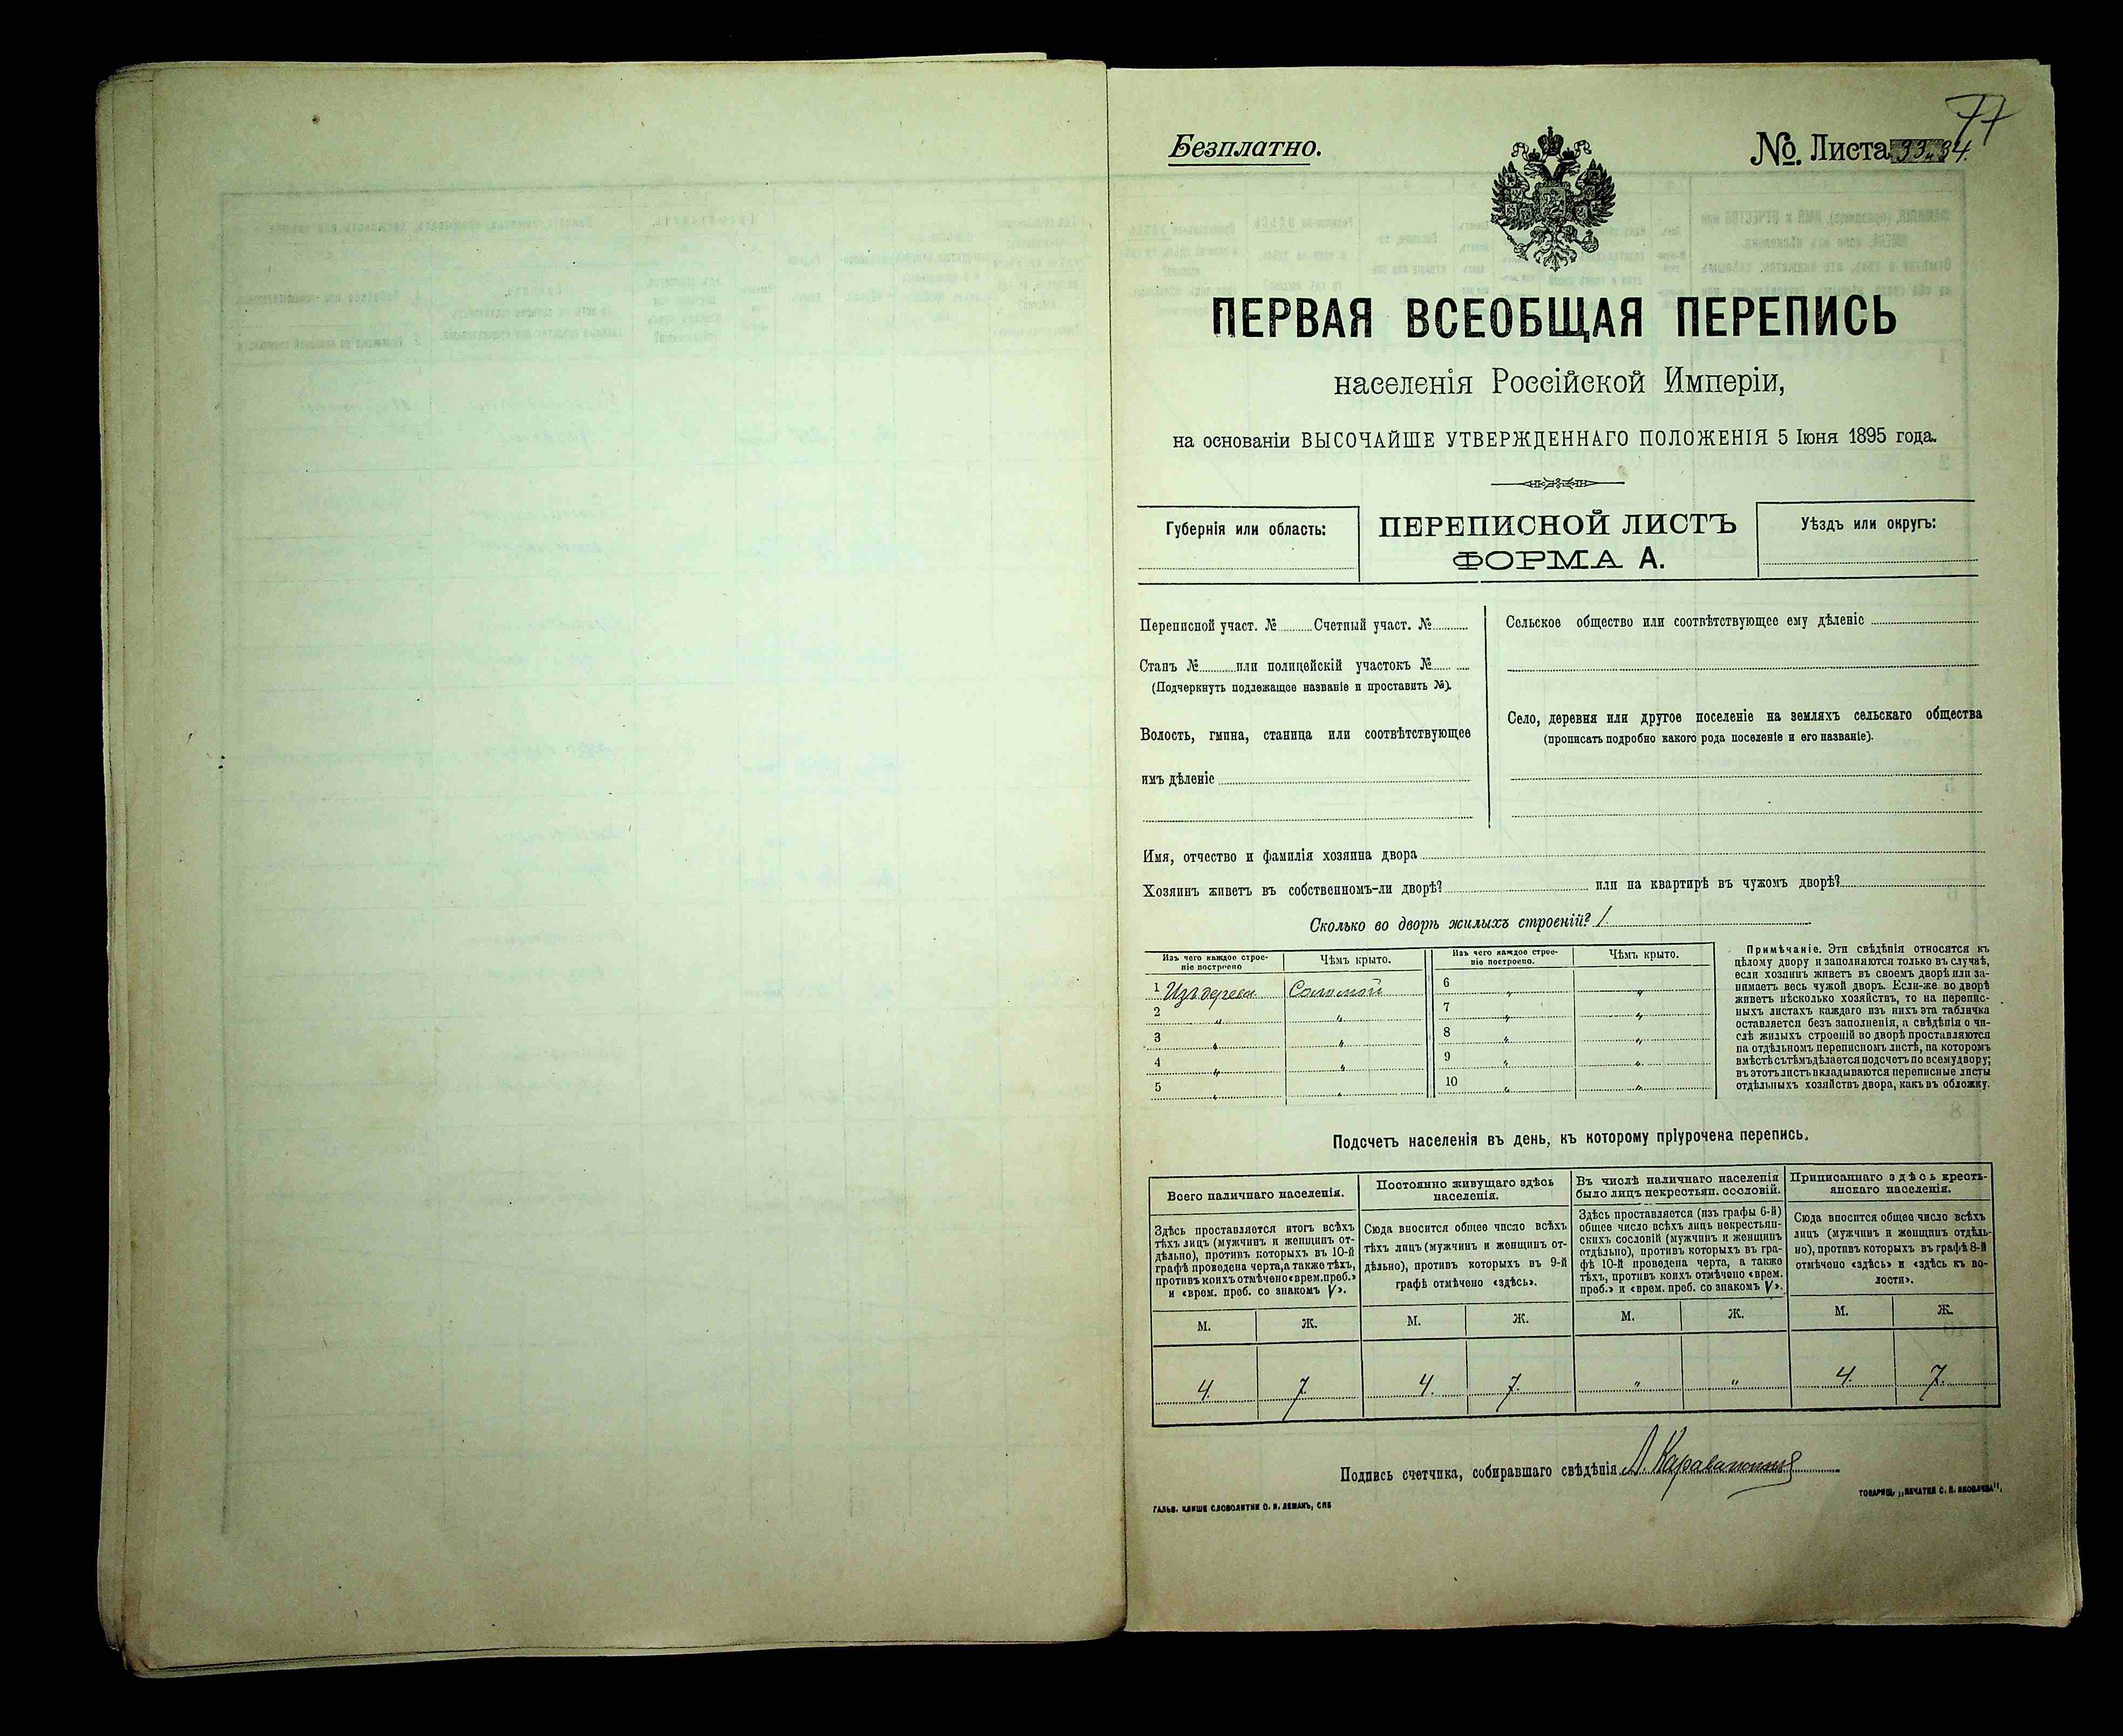 77
Безплатно.
№. Листа 33 и 34.
ПЕРВАЯ ВСЕОБЩАЯ ПЕРЕПИСЬ
населенія Россійской Имперіи,
на основаніи ВЫСОЧАЙШЕ УТВЕРЖДЕННАГО ПОЛОЖЕНІЯ 5 Іюня 1895 года.
Губернія или область:
ПЕРЕПИСНОЙ ЛИСТЪ
ФОРМА А.
Уѣздъ или округъ:
Переписной участ. № Счетный участ. №
Станъ № или полицейскій участокъ №
(Подчеркнуть подлежащее названіе и проставить №).
Волость, гмина, станица или соотвѣтствующее
имъ дѣленіе
Сельское общество или соотвѣтствующее ему дѣленіе
Село, деревня или другое поселеніе на земляхъ сельскаго общества
(прописать подробно какого рода поселеніе и его названіе).
Имя, отчество и фамилія хозяина двора
Хозяинъ живетъ въ собственномъ-ли дворѣ? или на квартирѣ въ чужомъ дворѣ?
Сколько во дворѣ жилыхъ строеній? 1.
Изъ чего каждое строе-
ніе построено
Чѣмъ крыто.
1 Изъ дерева Соломой
2 " "
3 " "
4 " "
5 " "
Изъ чего каждое строе-
ніе построено.
Чѣмъ крыто.
6 " "
7 " "
8 " "
9 " "
10 " "
Примѣчаніе. Эти свѣдѣнія относятся къ
цѣлому двору и заполняются только въ случаѣ,
если хозяинъ живетъ въ своемъ дворѣ или за-
нимаетъ весь чужой дворъ. Если-же во дворѣ
живетъ нѣсколько хозяйствъ, то на перепис-
ныхъ листахъ каждаго изъ нихъ эта табличка
оставляется безъ заполненія, а свѣдѣнія о чи-
слѣ жилыхъ строеній во дворѣ проставляются
на отдѣльномъ переписномъ листѣ, на которомъ
вмѣстѣ съ тѣмъ дѣлается подсчетъ по всему двору;
въ этотъ листъ вкладываются переписные листы
отдѣльныхъ хозяйствъ двора, какъ въ обложку.
Подсчетъ населенія въ день, къ которому пріурочена перепись.
Всего наличнаго населенія.
Здѣсь проставляется итогъ всѣхъ
тѣхъ лицъ (мужчинъ и женщинъ от-
дѣльно), противъ которыхъ въ 10-й
графѣ проведена черта, а также тѣхъ,
противъ коихъ отмѣчено «врем. преб.»
и «врем. преб. со знакомъ V».
М. Ж.
4. 7.
Постоянно живущаго здѣсь
населенія.
Сюда вносится общее число всѣхъ
тѣхъ лицъ (мужчинъ и женщинъ от-
дѣльно), противъ которыхъ въ 9-й
графѣ отмѣчено «здѣсь».
М. Ж.
4. 7.
Въ числѣ наличнаго населенія
было лицъ некрестьян. сословій.
Здѣсь проставляется (изъ графы 6-й)
общее число всѣхъ лицъ некрестьян-
скихъ сословій (мужчинъ и женщинъ
отдѣльно), противъ которыхъ въ гра-
фѣ 10-й проведена черта, а также
тѣхъ, противъ коихъ отмѣчено «врем.
преб.» и «врем. преб. со знакомъ V».
М. Ж.
" "
Приписаннаго здѣсь кресть-
янскаго населенія.
Сюда вносится общее число всѣхъ
лицъ (мужчинъ и женщинъ отдѣль-
но), противъ которыхъ въ графѣ 8-й
отмѣчено «здѣсь» и «здѣсь къ во-
лости».
М. Ж.
4. 7.
Подпись счетчика, собиравшаго свѣдѣнія
ГАЛЬВ. КЛИШЕ СЛОВОЛИТНИ О. И. ЛЕМАНЪ, СПБ
ТОВАРИЩ. „ПЕЧАТНЯ С. П. ЯКОВЛЕВА".